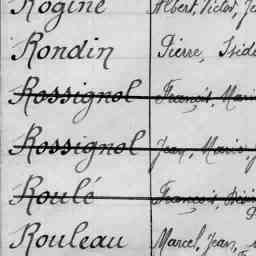 Rogine Albert, Victor, Je
Rondin Pierre, Isid
Rossignol François, Mari
Rossignol Jean, Marie, J
Roulé François, Désir
Rouleau Marcel, Jean,